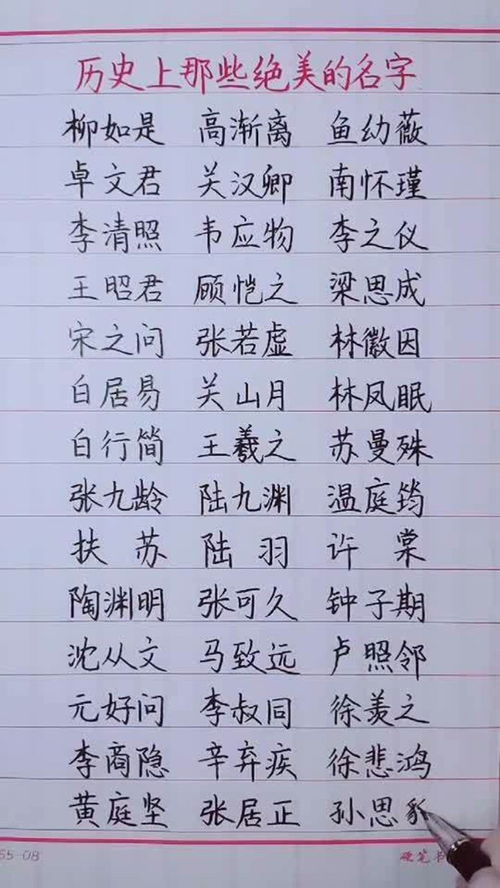 历史上那些绝美的名字
柳如是 高渐离 鱼幼薇
卓文君 关汉卿 南怀瑾
李清照 韦应物 李之仪
王昭君 顾恺之 梁思成
宋之问 张若虚 林徽因
白居易 关山月 林凤眠
白行简 王羲之 苏曼殊
张九龄 陆九渊 温庭筠
扶苏 陆羽 许棠
陶渊明 张可久 钟子期
沈从文 马致远 卢照邻
元好问 李叔同 徐羡之
李商隐 辛弃疾 徐悲鸿
黄庭坚 张居正 孙思
55-08 硬笔书